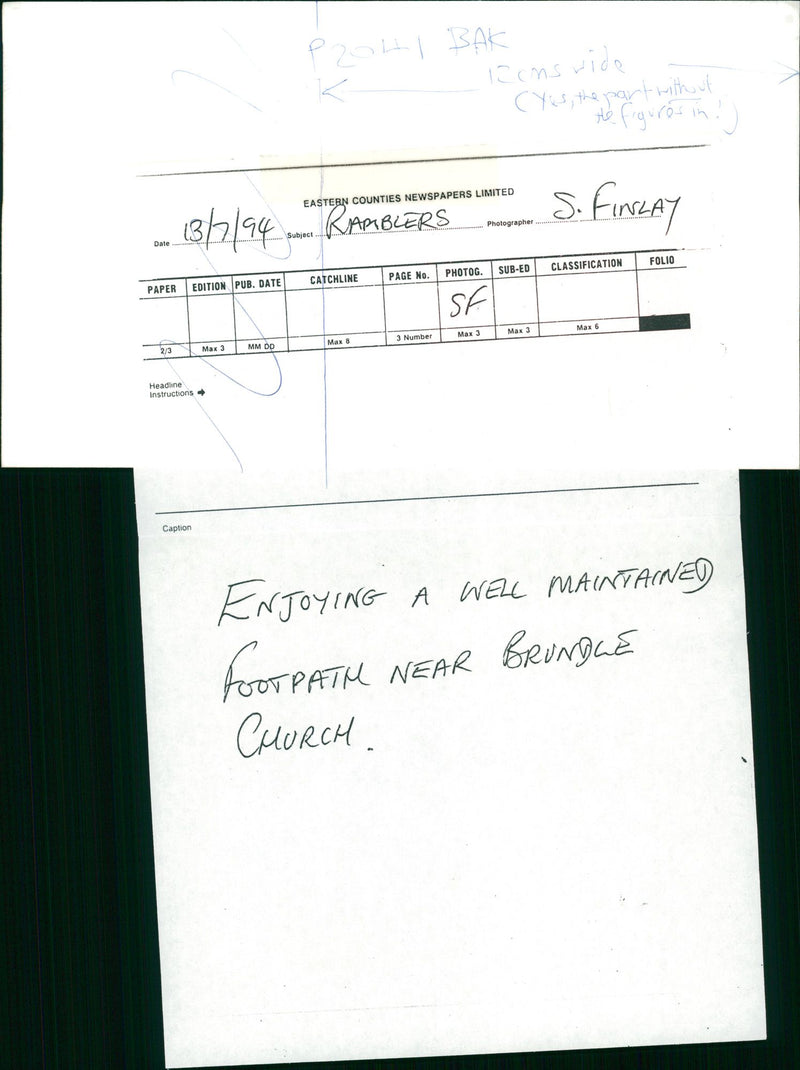 P2041 BAK
12cms wide
(Yes, the part without
the figures in!)
EASTERN COUNTIES NEWSPAPERS LIMITED
Date 13/7/94 Subject RAMBLERS Photographer S. FINLAY
PAPER EDITION PUB. DATE CATCHLINE PAGE No. PHOTOG. SUB-ED CLASSIFICATION FOLIO
SF
2/3 Max 3 MM DD Max 8 3 Number Max 3 Max 3 Max 6
Headline
Instructions
Caption
ENJOYING A WELL MAINTAINED
FOOTPATH NEAR BRUNDLE
CHURCH.